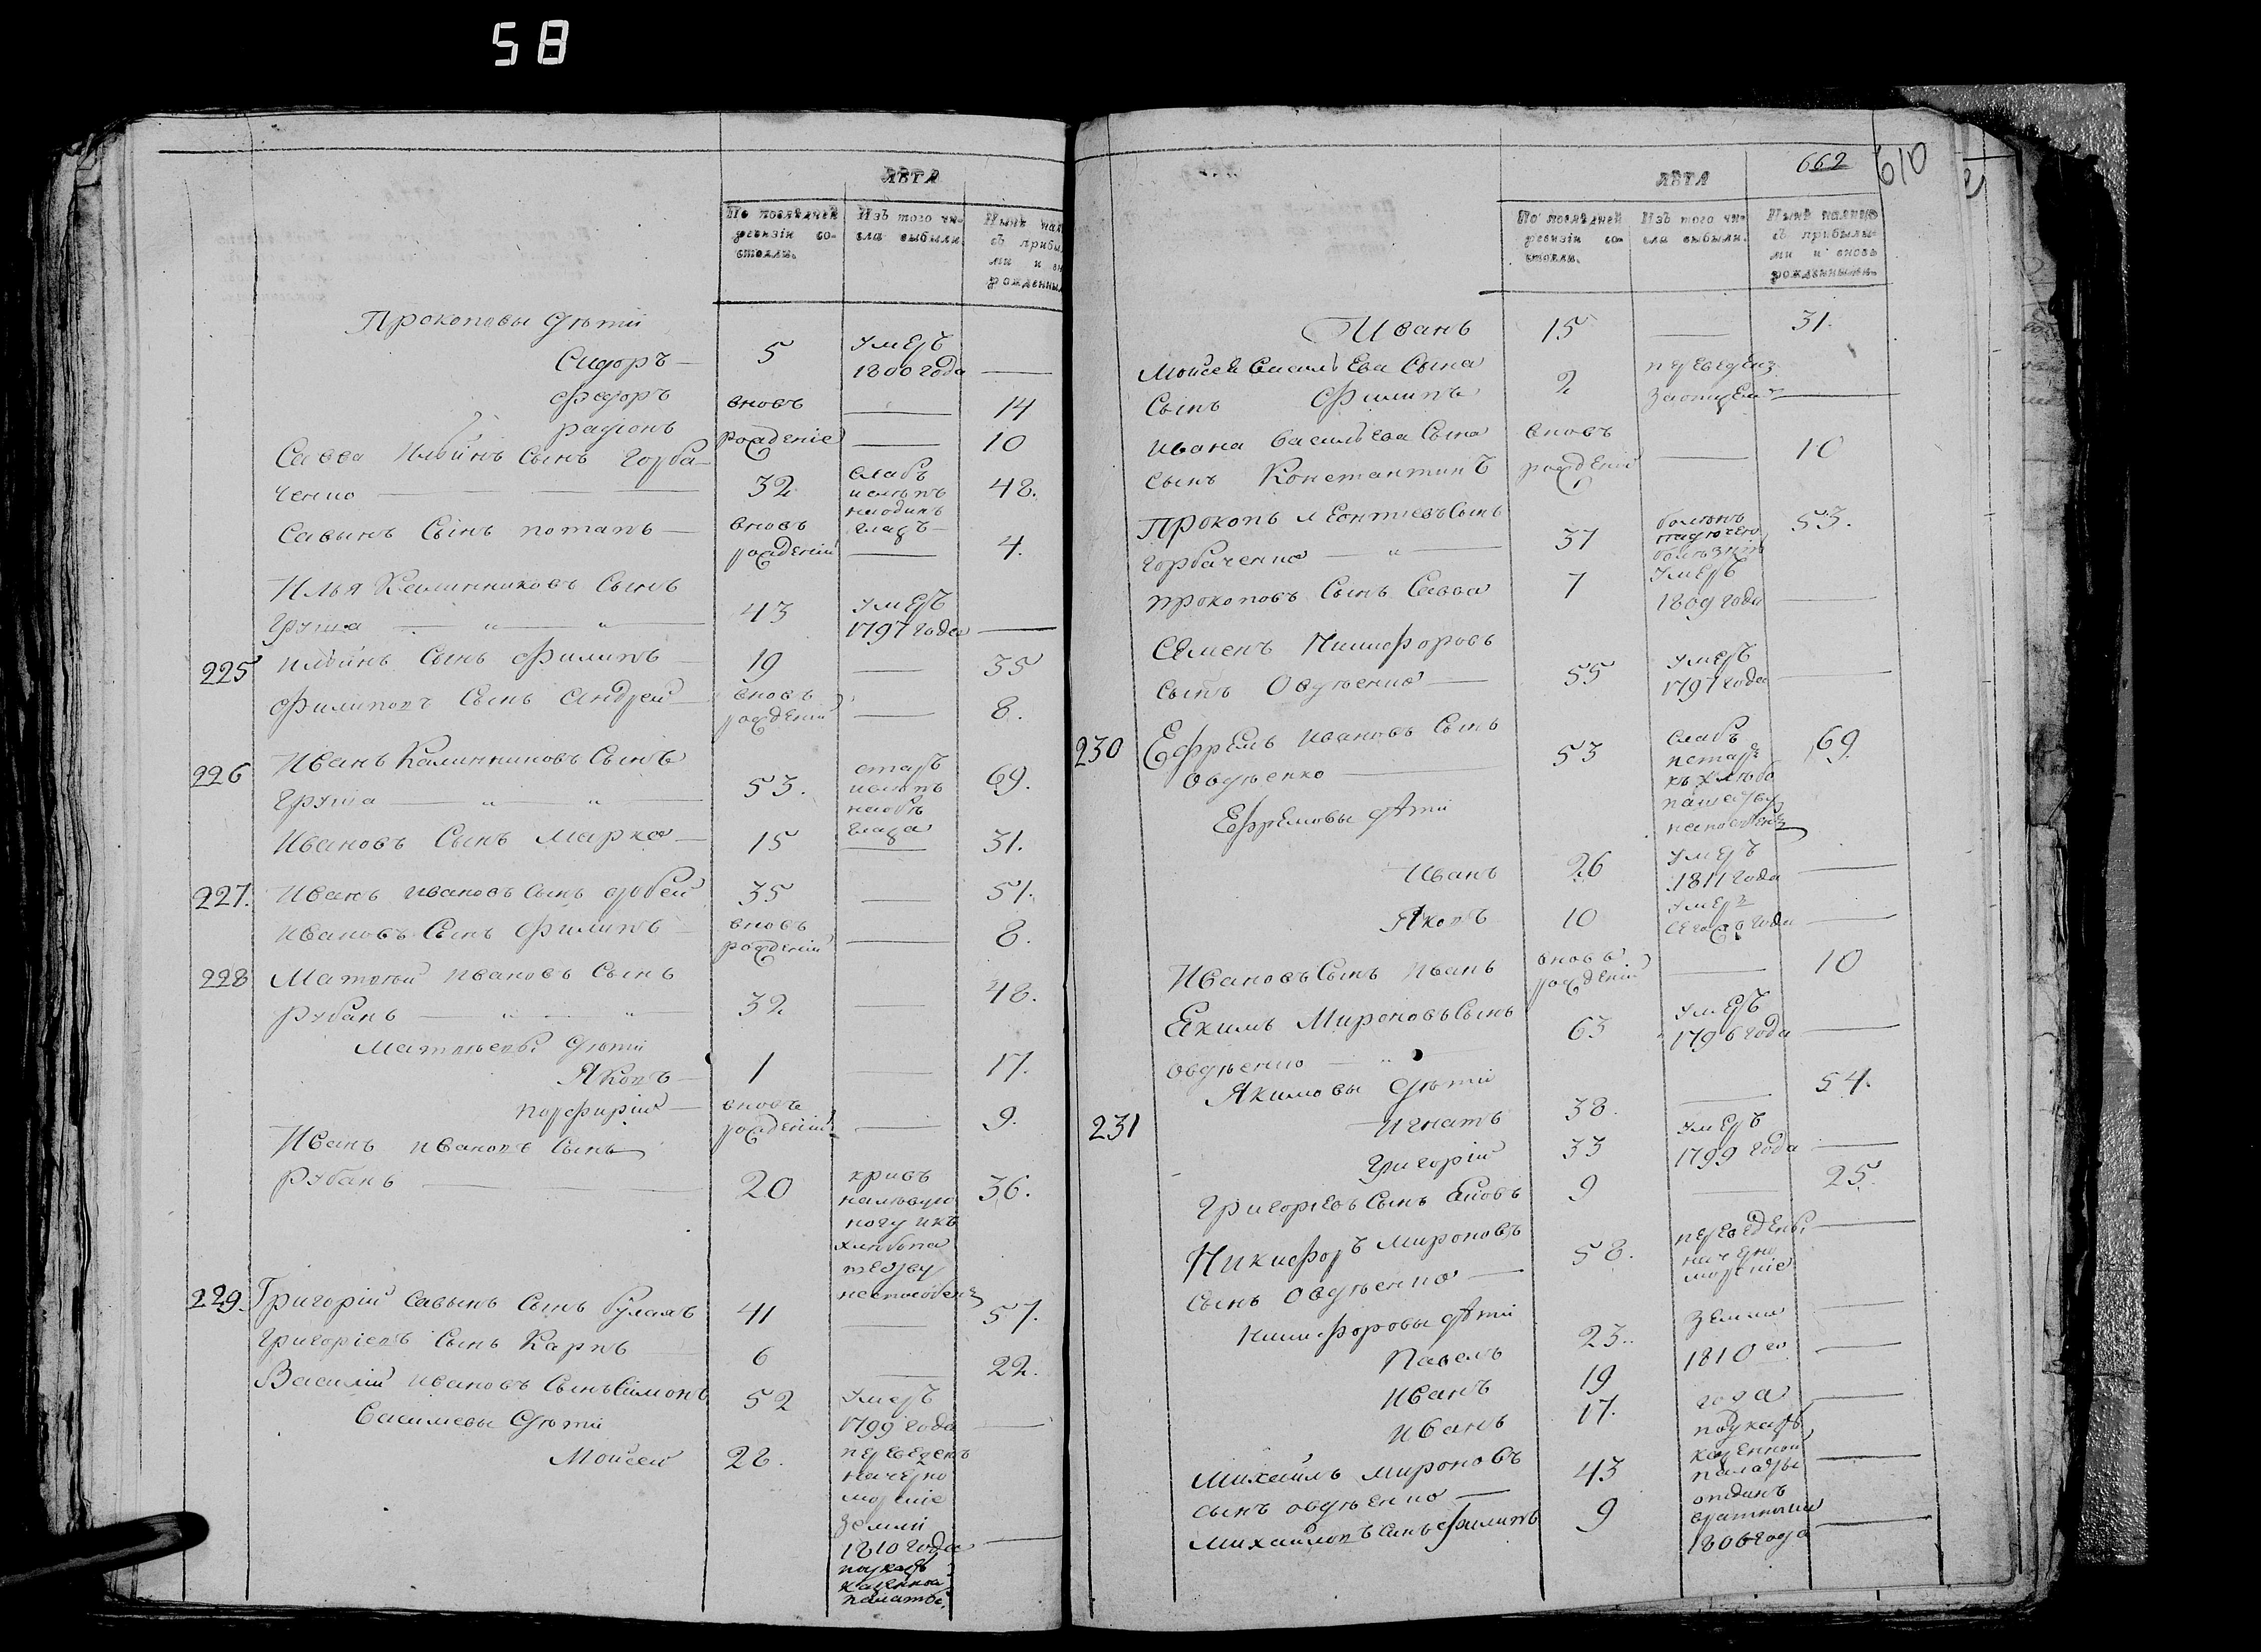 58
ЛѢТА
По послѣдней ревизіи состояли.
Изъ того числа выбыли.
Нынѣ нали
съ прибы
ми и вн
рожденны
Прокоповы дѣти
Сидоръ — 5 умеръ 1800 года —
Федоръ вновь — 14
Радіонъ рожденіе — 10
Савва Ильинъ Сынъ Горба-
ченко — 32 слабъ 48.
Савинъ Сынъ Потапъ — вновь рожденій — 4.
Илья Калинниковъ Сынъ
Груша — " — " — 43 умеръ 1797 года —
225 Ильинъ Сынъ Филипъ — 19 — 35
Филиповъ Сынъ Андрей — вновь рожденій — 8.
226 Иванъ Калинниковъ Сынъ
Груша — " — " — 53. старъ 69.
глаза
Ивановъ Сынъ Марко — 15 — 31.
227. Иванъ Ивановъ Сынъ 35 — 51.
Ивановъ Сынъ Филипъ — вновь рожденій — 8.
228 Матвѣй Ивановъ Сынъ
Рубанъ — " — " — 32 — 48.
Матвѣевы дѣти
Яковъ — 1 — 17.
Порфирій — вновь рожденій — 9.
Иванъ Ивановъ Сынъ
Рубанъ — 20 кривъ 36.
на лѣвую
ногу и къ
хлѣбопа
шеству
неспособенъ
229. Григорій Савинъ Сынъ Буламъ 41 — 57.
Григоріевъ Сынъ Карпъ — 6 — 22.
Василій Ивановъ Сынъ Симонъ 52 умеръ 1799 года —
Васильевы дѣти
Моисей 28. переведенъ
на черно
морскіе
земли
1810 года —
по указу
казенной
палаты.
662
610
ЛѢТА
По послѣдней ревизіи состояли.
Изъ того числа выбыли.
Нынѣ налицо съ прибылыми и вновь рожденными.
Иванъ 15 — 31.
Моисея Васильева Сына
Сынъ Филипъ 2 —
Ивана Васильева Сына вновь
Сынъ Константинъ рожденій — 10
Прокопъ Леонтіевъ Сынъ
Горбаченко — " — 37 боленъ 53.
падучею
болѣзнію
Прокоповъ Сынъ Савва 7 умеръ 1809 года —
Семенъ Никифоровъ
Сынъ Овдѣенко — 55 умеръ 1797 года —
230 Ефремъ Ивановъ Сынъ
Овдѣенко — 53 слабъ 69.
и старъ
къ хлѣбо
пашеству
неспособенъ
Ефремовы дѣти
Иванъ 26 умеръ 1811 года —
Яковъ 10 умеръ сего года —
Ивановъ Сынъ Иванъ вновь рожденій — 10
Екимъ Мироновъ Сынъ
Овдѣенко — " — 63 умеръ 1796 года —
Якимовы дѣти
231 Игнатъ 38. — 54.
Григорій 33 умеръ 1799 года —
Григоріевъ Сынъ 9 — 25.
Никифоръ Мироновъ
Сынъ Овдѣенко — 58. переведены —
на черно
морскіе
Никифоровы дѣти
Павелъ 23. земли —
Иванъ 19 1810 го —
Иванъ 17. года —
по указу
казенной
палаты
Михаилъ Мироновъ
Сынъ Овдѣенко — 43 —
Михаиловъ Сынъ Филипъ 9 отданъ —
1806 года